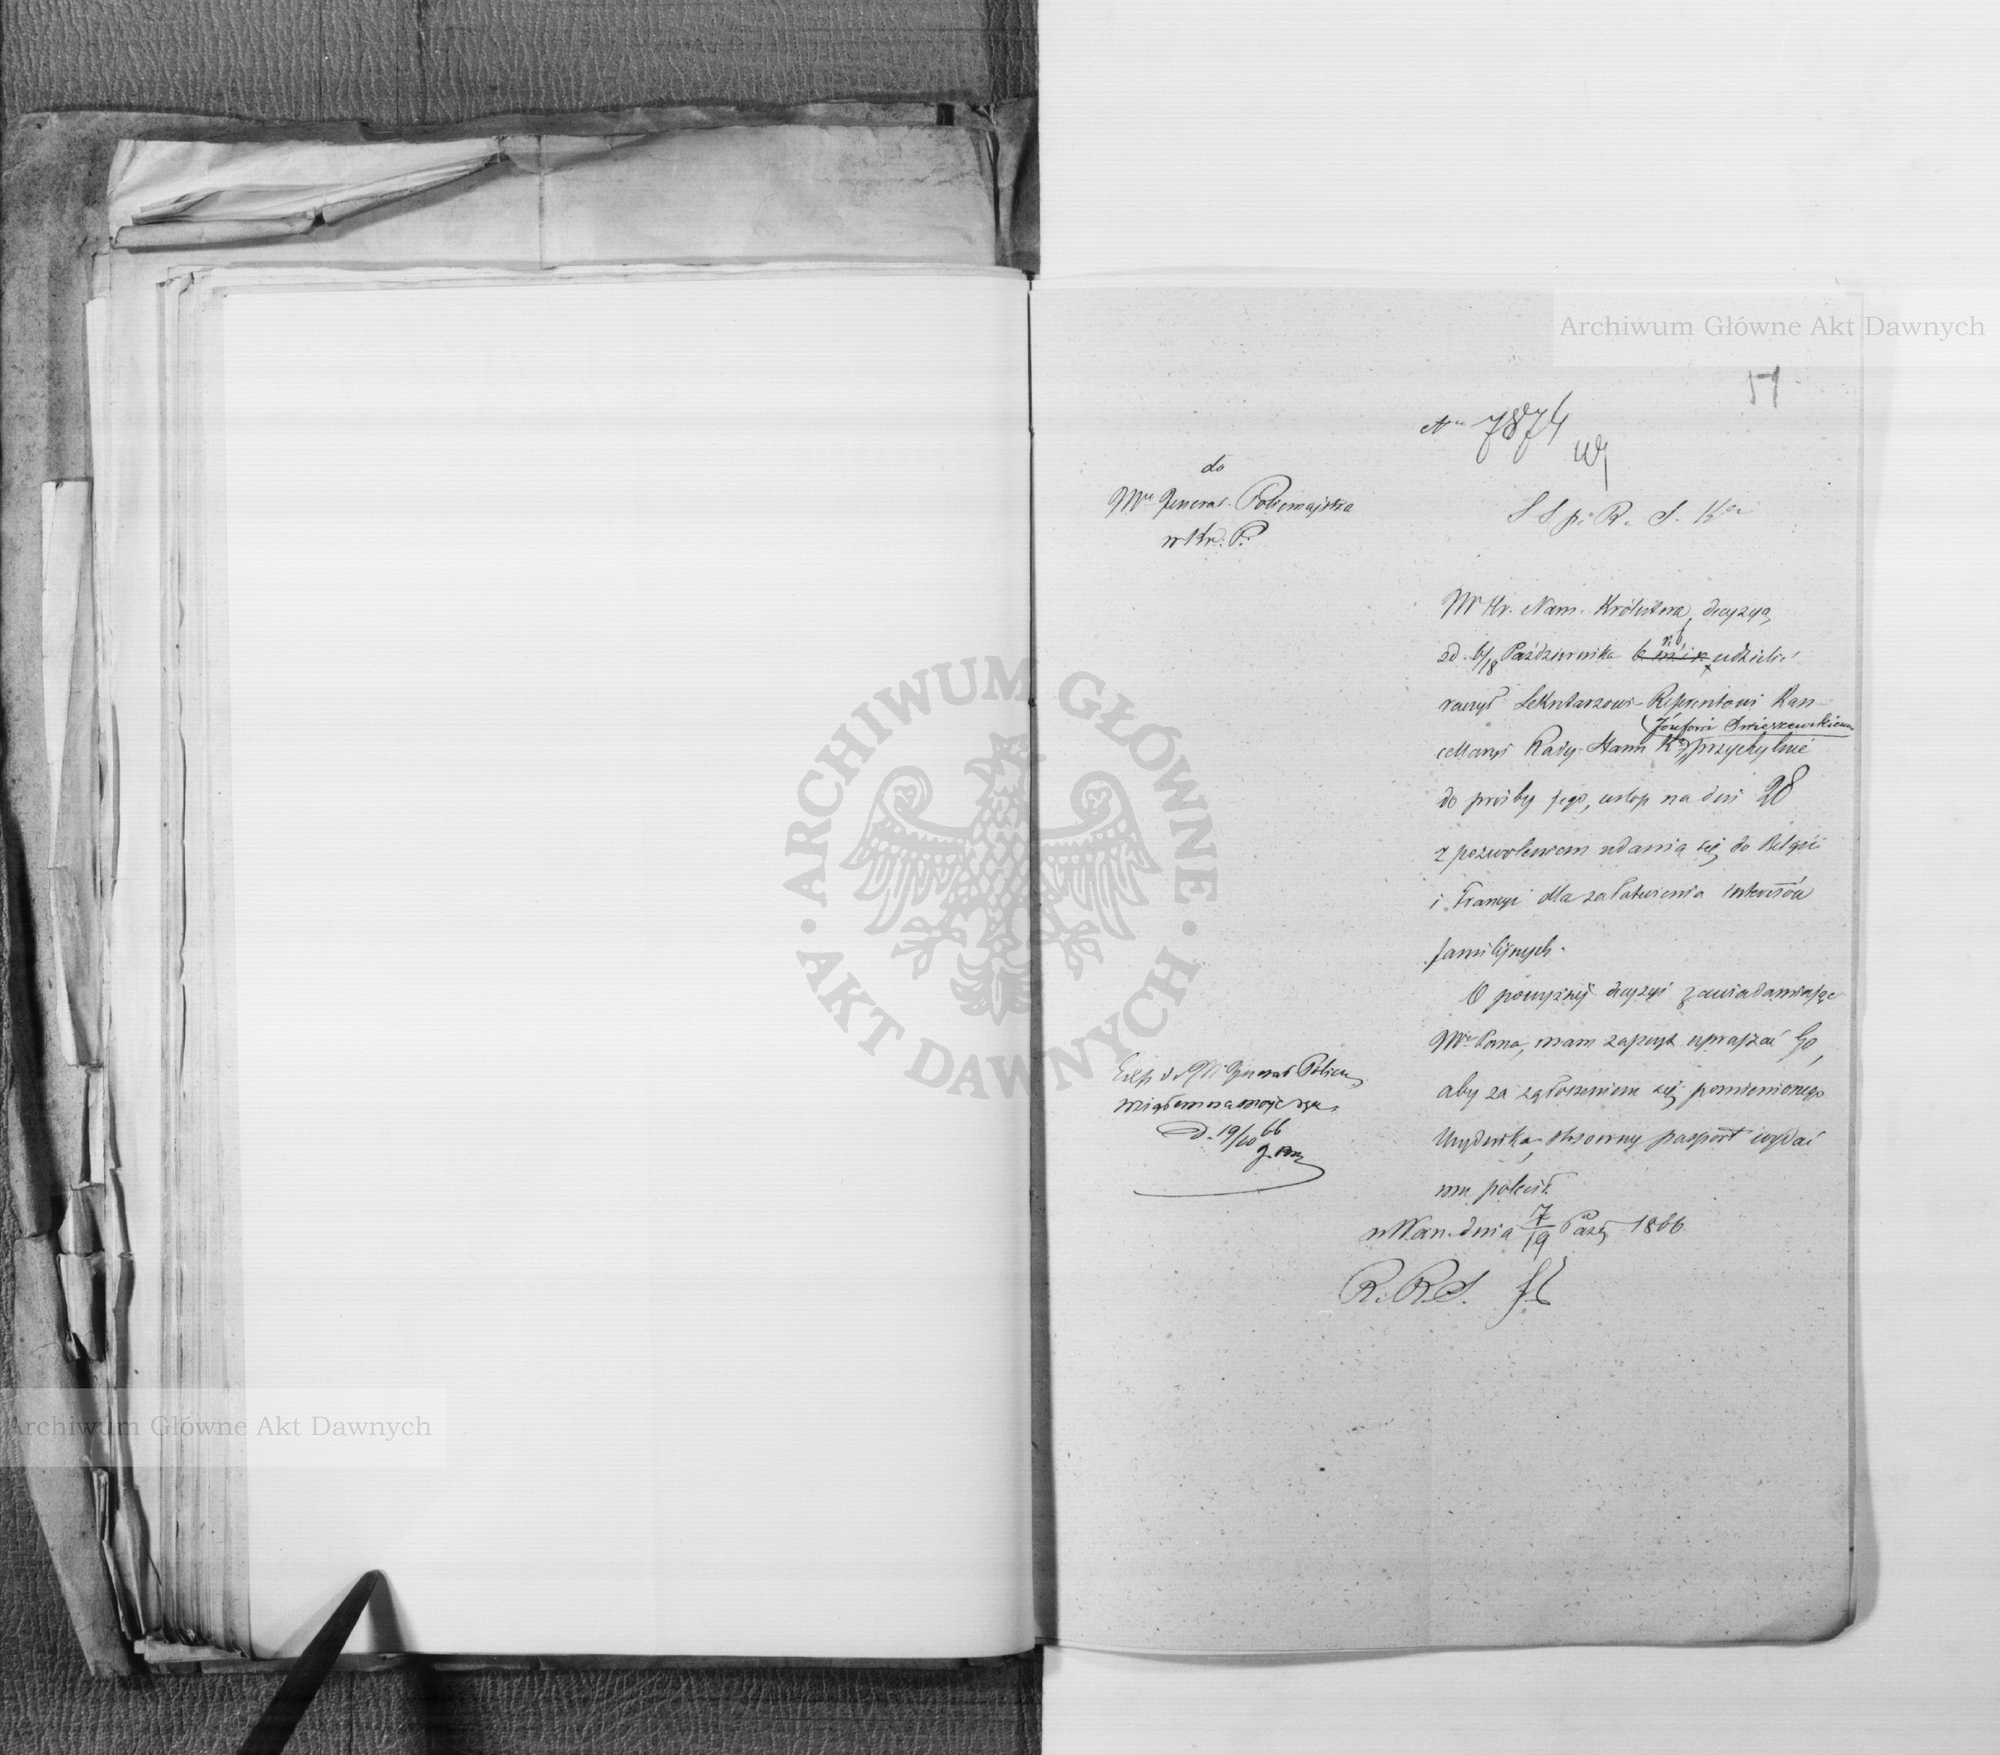 Archiwum Główne Akt Dawnych
51
Nr 7874
do
JW. General. Policmajstra
w Kr. P.
S S p. R. S. Ka
JW Hr. Nam. Królestwa, decyzyą
z d. 6/18 Października b m i r. n b, udzielić
raczył Sekretarzowi Referentowi Kan
cellaryi Rady Stanu Ka Józefowi przychylnie
do prośby jego, urlop na dni 28
z pozwoleniem udania się do Belgii
i Francyi dla załatwienia interesów
familijnych.
O powyższej decyzyi zawiadamiając
JW. Pana, mam zaszczyt upraszać Go,
aby za zgłoszeniem się pomienionego
Urzędnika, stosowny pasport wydać
mu polecił.
w War. dnia 7/19 Paźd 1866
R. R. S.
Exp. do JW General Policm
wziąłem na moje ręce
d. 19/10 66
ARCHIWUM GŁÓWNE
· AKT DAWNYCH ·
Archiwum Główne Akt Dawnych